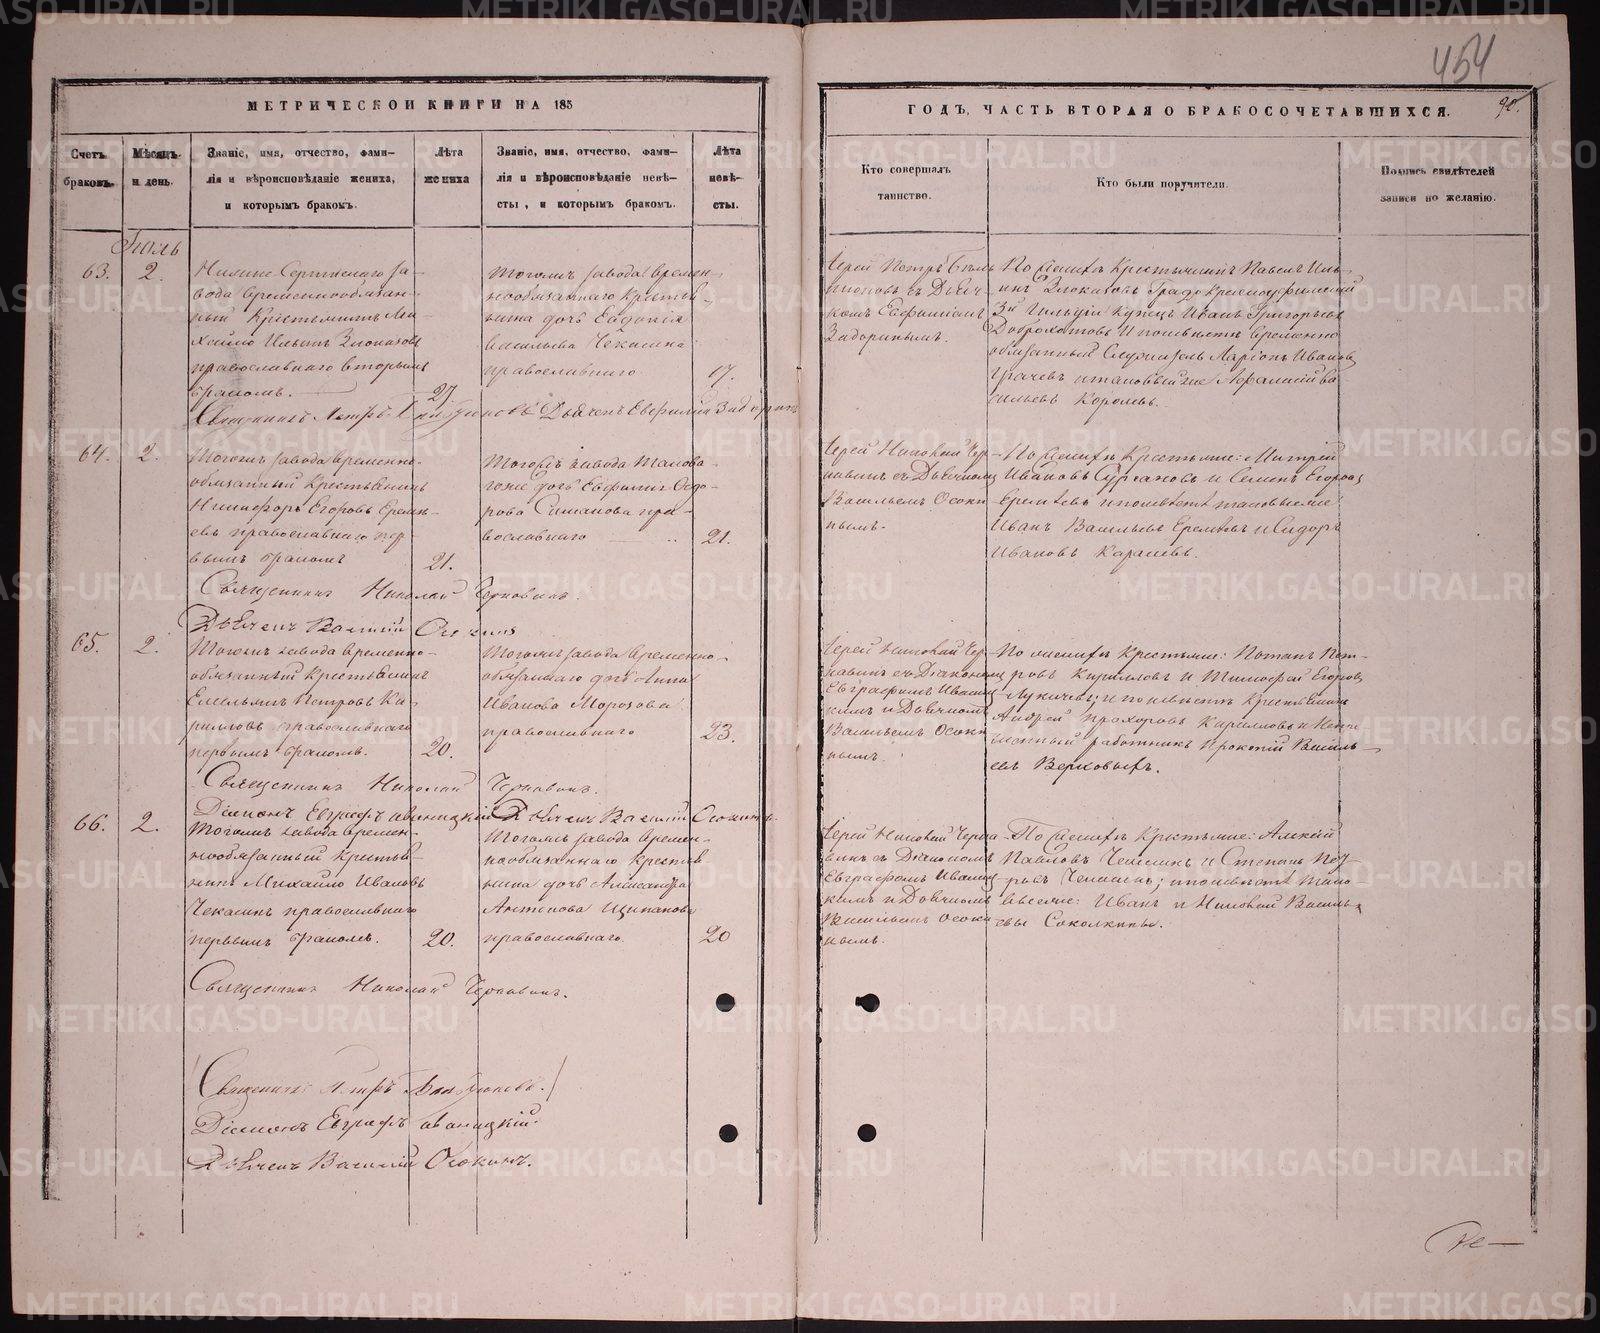 454
90.
МЕТРИЧЕСКОЙ КНИГИ НА 185
ГОДЪ, ЧАСТЬ ВТОРАЯ О БРАКОСОЧЕТАВШИХСЯ.
Счетъ браковъ.
Мѣсяцъ и день.
Званіе, имя, отчество, фами-
лія и вѣроисповѣданіе жениха,
и которымъ бракомъ.
Лѣта
жениха
Званіе, имя, отчество, фами-
лія и вѣроисповѣданіе невѣ-
сты, и которымъ бракомъ.
Лѣта
невѣ-
сты.
Кто совершалъ
таинство.
Кто были поручители.
Подпись свидѣтелей
записи по желанію.
Іюль
63.
2.
Нижне-Сергинскаго за-
вода временнообязан-
ный Крестьянинъ Ми-
хайло Ильинъ Злоказовъ
православнаго вторымъ
бракомъ.
27.
Тогожъ завода времен-
нообязаннаго Крестья-
нина дочь Евдокія
Васильева Чекасина
православнаго
17.
Іерей Петръ
съ Дьяч-
комъ Евфиміемъ
Задоринымъ.
По женихѣ Крестьянинъ Павелъ Иль-
инъ Злоказовъ Градо Красноуфимскій
3й Гильдіи Купецъ Иванъ Григорьевъ
Доброхотовъ и по невѣстѣ временно
обязанный Служитель Ларіонъ Ивановъ
Грачевъ и таковый же Афанасій Ва-
сильевъ Королевъ.
Священникъ Петръ Дьячекъ Евфимій Задоринъ
64.
2.
Тогожъ завода временно-
обязанный Крестьянинъ
Никифоръ Егоровъ Ереме-
евъ православнаго пер-
вымъ бракомъ
21.
Тогожъ завода Таково-
гоже дочь Евфимія Ѳедо-
рова православнаго
21.
Іерей Николай Чер-
навинъ съ Дьячкомъ
Васильемъ Осоки-
нымъ.
По женихѣ Крестьяне: Митрей
Ивановъ и Семенъ Егоровъ
Еремѣевъ и по невѣстѣ таковые же
Иванъ Васильевъ Еремѣевъ и Сидоръ
Ивановъ Карашевъ.
Священникъ Николай Чернавинъ.
Дьячекъ Василій Осокинъ
65.
2.
Тогожъ завода временно-
обязанный Крестьянинъ
Емельянъ Петровъ Ки-
рилловъ православнаго
первымъ бракомъ.
20.
Тогожъ завода временно-
обязаннаго дочь Анна
Иванова Морозова
православнаго
23.
Іерей Николай Чер-
навинъ съ Діакономъ
Евграфомъ Иваниц-
кимъ и Дьячкомъ
Васильемъ Осоки-
нымъ.
По женихѣ Крестьяне: Потапъ Пет-
ровъ Кирилловъ и Тимофей Егоровъ
Лукичевъ; и по невѣстѣ Крестьянинъ
Андрей Прохоровъ Кирилловъ и
работникъ Прокопій Василь-
евъ Верховыхъ.
Священникъ Николай Чернавинъ.
Діаконъ Евграфъ Иваницкій Дьячекъ Василій Осокинъ.
66.
2.
Тогожъ завода времен-
нообязанный Крестья-
нинъ Михайло Ивановъ
Чекасинъ православнаго
первымъ бракомъ.
20.
Тогожъ завода времен-
нообязаннаго Крестья-
нина дочь Александра
Антипова Щипанова
православнаго.
20
Іерей Николай Черна-
винъ съ Діакономъ
Евграфомъ Иваниц-
кимъ и Дьячкомъ
Васильемъ Осоки-
нымъ.
По женихѣ Крестьяне: Алексій
Павловъ и Степанъ Пет-
ровъ и по невѣстѣ тако-
вые же: Иванъ и Николай Василь-
евы Соколкины.
Священникъ Николай Чернавинъ.
Священникъ Петръ
Діаконъ Евграфъ Иваницкій.
Дьячекъ Василій Осокинъ.
METRIKI.GASO-URAL.RU